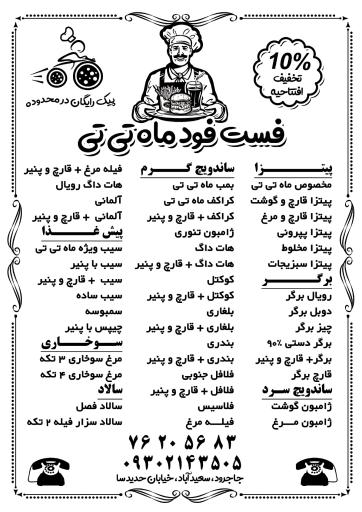 پیک رایگان در محدوده
10%
تخفیف
افتتاحیه
فست فود ماه تی تی
پیتزا
مخصوص ماه تی تی
پیتزا قارچ و گوشت
پیتزا قارچ و مرغ
پیتزا پپرونی
پیتزا مخلوط
پیتزا سبزیجات
برگر
رویال برگر
دوبل برگر
چیز برگر
برگر دستی ۹۰%
برگر + قارچ و پنیر
قارچ برگر
ساندویچ سرد
ژامبون گوشت
ژامبون مرغ
ساندویچ گرم
بمب ماه تی تی
کراکف ماه تی تی
کراکف + قارچ و پنیر
ژامبون تنوری
هات داگ
هات داگ + قارچ و پنیر
کوکتل
کوکتل + قارچ و پنیر
بلغاری
بلغاری + قارچ و پنیر
بندری
بندری + قارچ و پنیر
فلافل جنوبی
فلافل + قارچ و پنیر
فلاسیس
فیله مرغ
فیله مرغ + قارچ و پنیر
هات داگ رویال
آلمانی
آلمانی + قارچ و پنیر
پیش غذا
سیب ویژه ماه تی تی
سیب با پنیر
سیب + قارچ و پنیر
سیب ساده
سمبوسه
چیپس با پنیر
سوخاری
مرغ سوخاری ۳ تکه
مرغ سوخاری ۴ تکه
سالاد
سالاد فصل
سالاد سزار فیله ۲ تکه
۷۶ ۲۰ ۵۶ ۸۳
۰۹۳۰۲۱۴۳۵۰۵
جاجرود، سعیدآباد، خیابان حدیدسا